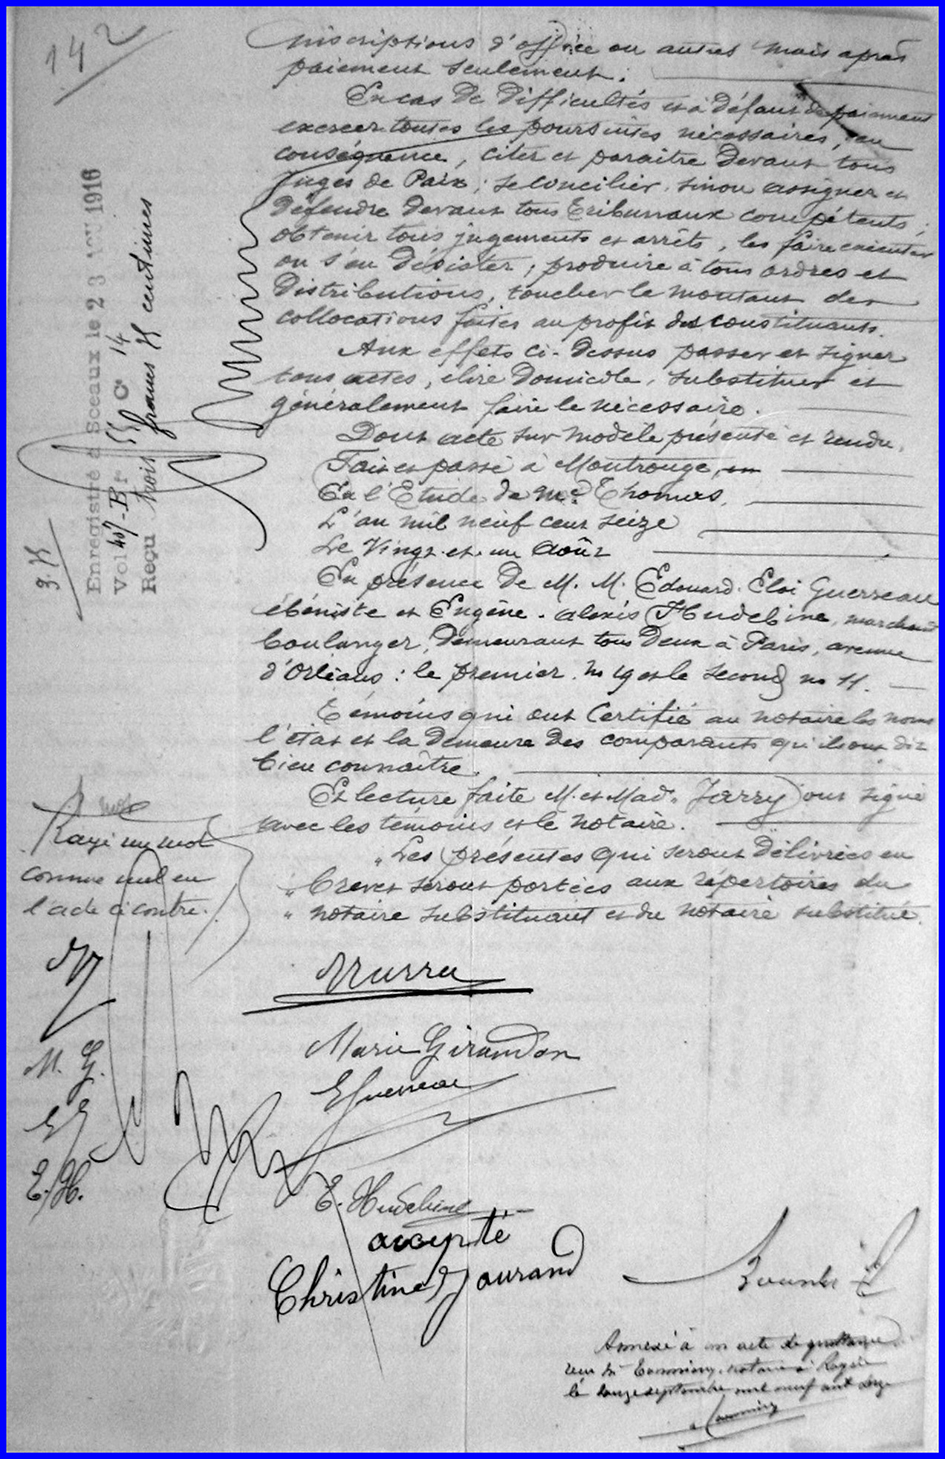 142
inscriptions d'office ou autres mais après
paiement seulement.
En cas de difficultés et à défaut de paiement
exercer toutes les poursuites nécessaires, en
conséquence, citer et paraitre devant tous
Juges de Paix ; se concilier, sinon assigner et
défendre devant tous tribunaux compétents ;
obtenir tous jugements et arrêts, les faire exécuter
ou s'en désister ; produire à tous ordres et
distributions, toucher le montant des
collocations faites au profit des constituants.
Aux effets ci-dessus passer et signer
tous actes, élire domicile, substituer et
généralement faire le nécessaire.
Dont acte sur modèle présenté et rendu.
Fait et passé à Montrouge, en
En l'Etude de Me Thomas,
L'an mil neuf cent seize
Le Vingt et un Août
En présence de M. M. Edouard. Eloi Guerreau
ébéniste et Eugène. Alexis Hudebine, marchand
boulanger, demeurant tous deux à Paris, avenue
d'Orléans : le premier. no 19 et le second no 11.
Témoins qui ont Certifié au notaire les noms
l'état et la demeure des comparants qu'ils ont dit
bien connaître
Et lecture faite M. et Mad. Jarry ont signé
avec les témoins et le notaire.
"Les présentes qui seront délivrées en
" brevet seront portées aux répertoires du
" notaire substituant et du notaire substitué.
Enregistré à Sceaux le 23 AOU 1916
Vol Br Fo 55 Co 14
Reçu trois francs centimes
Rayé un mot
comme nul en
l'acte ci contre.
M. G.
E G
E. H.
Marie Girandon
EGuerreau
E. Hudebine
accepté
Christine Jourand
Annexé à un acte de quittance
reçu Me notaire à
le douze septembre mil neuf cent seize